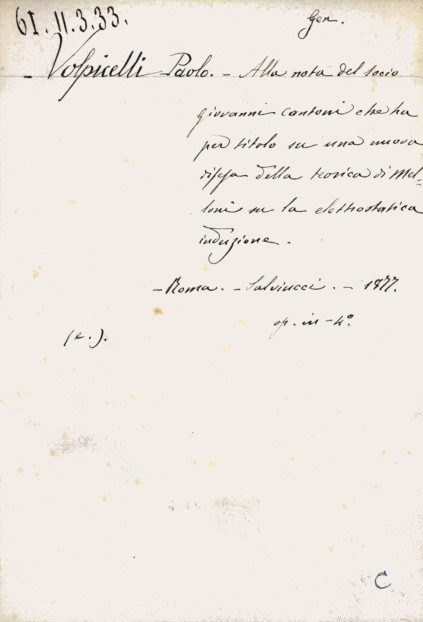 61.11.3.33.
Gen.
- Volpicelli Paolo. - Alla nota del socio
giovanni Cantoni che ha
per titolo su una nuova
difesa della teorica di Mel=
loni su la elettrostatica
induzione.
- Roma. - Salviucci. - 1877.
op. in-4°.
(e.).
C